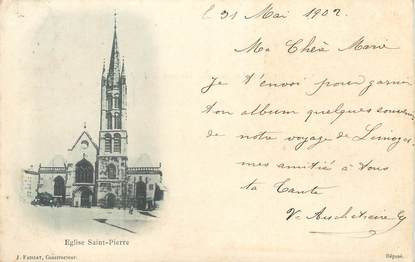 le 31 Mai 1902.
Ma Chère Marie
Je t'envoi pour garnir
ton album quelques souvenir
de notre voyage de Limoges
mes amitié à tous
ta Tante
Eglise Saint-Pierre
J. Faissat, Constructeur.
Déposé.